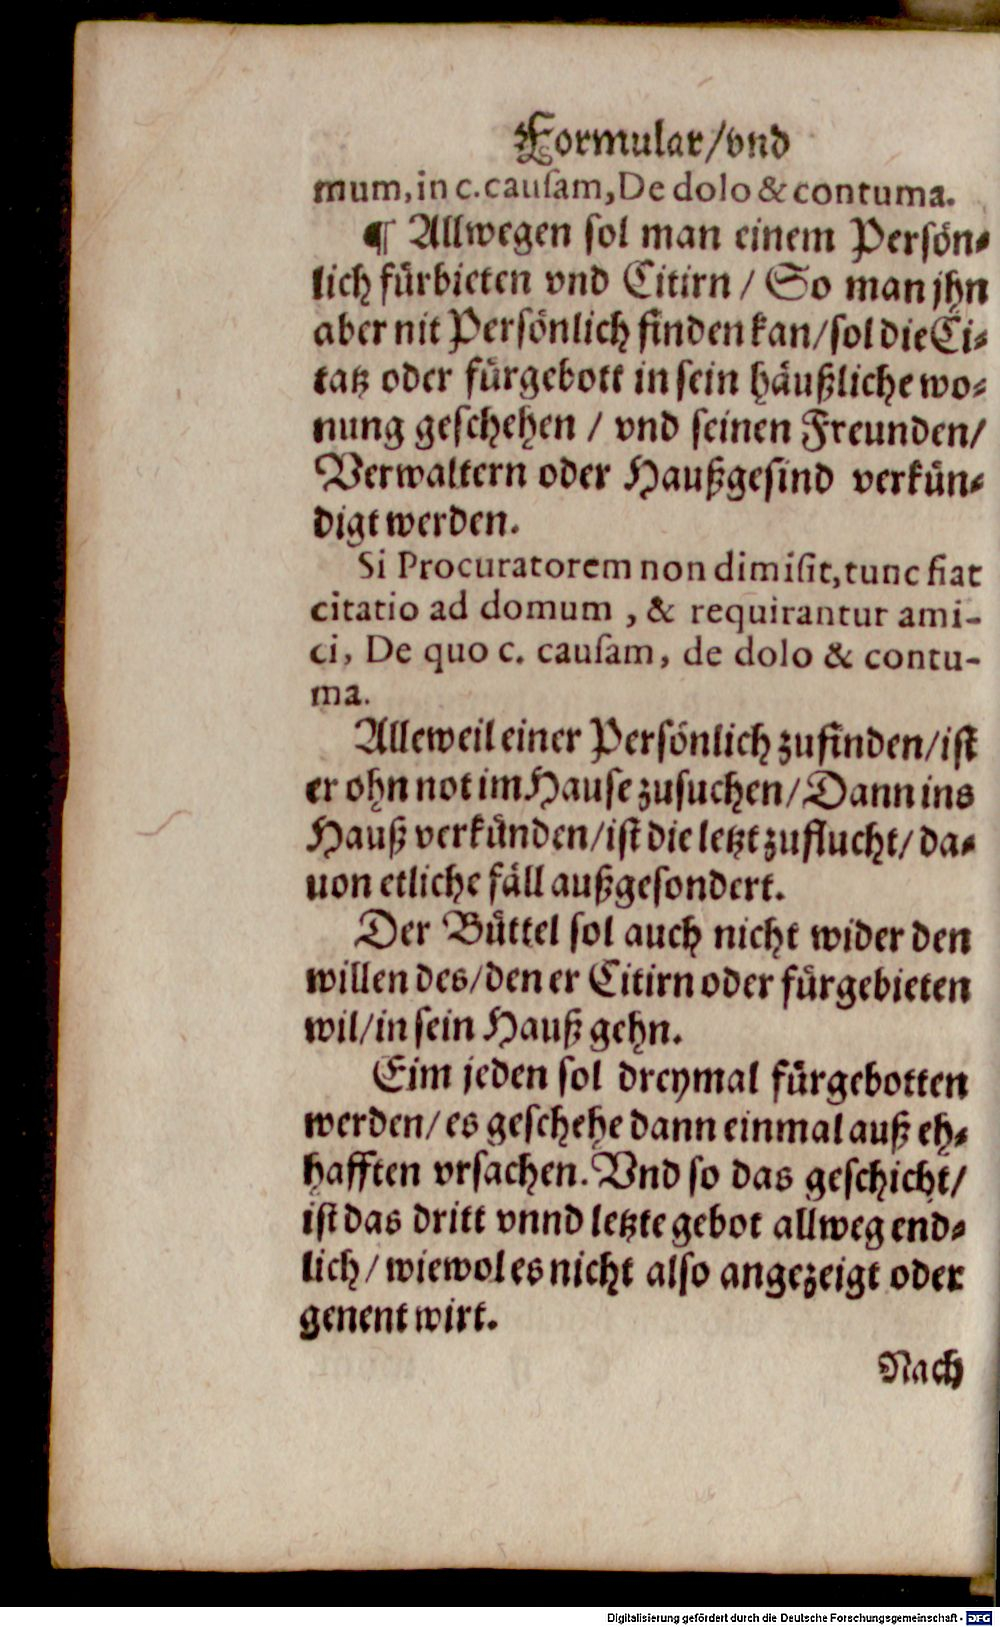 Formular/vnd
mum, in c. cauſam, De dolo & contuma.
¶ Allwegen ſol man einem Perſoͤn⸗
lich fuͤrbieten vnd Citirn / So man jhn
aber nit Perſoͤnlich finden kan/ſol die Ci⸗
tatz oder fuͤrgebott in ſein haͤußliche wo⸗
nung geſchehen / vnd ſeinen Freunden/
Verwaltern oder Haußgeſind verkuͤn⸗
digt werden.
Si Procuratorem non dimiſit, tunc fiat
citatio ad domum , & requirantur ami-
ci, De quo c. cauſam, de dolo & contu-
ma.
Alleweil einer Perſoͤnlich zufinden/iſt
er ohn not im Hauſe zuſuchen/Dann ins
Hauß verkuͤnden/iſt die letzt zuflucht/da⸗
uon etliche faͤll außgeſondert.
Der Buͤttel ſol auch nicht wider den
willen des/den er Citirn oder fuͤrgebieten
wil/in ſein Hauß gehn.
Eim jeden ſol dreymal fuͤrgebotten
werden/es geſchehe dann einmal auß eh⸗
hafften vrſachen. Vnd ſo das geſchicht/
iſt das dritt vnnd letzte gebot allweg end⸗
lich/wiewol es nicht alſo angezeigt oder
genent wirt.
Nach
Digitalisierung gefördert durch die Deutsche Forschungsgemeinschaft - DFG